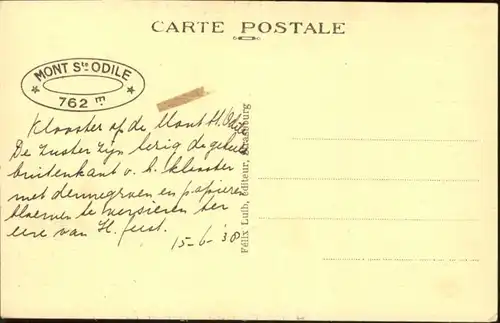 CARTE POSTALE
MONT Ste ODILE
762 m
Klooster op de Mont St. Odile
De zuster zijn bezig de geheele
buitenkant v. h. klooster
met dennegroen en papieren
bloemen te versieren ter
eere van H. feest.
15-6-'38
Félix Luib, éditeur, Strasbourg